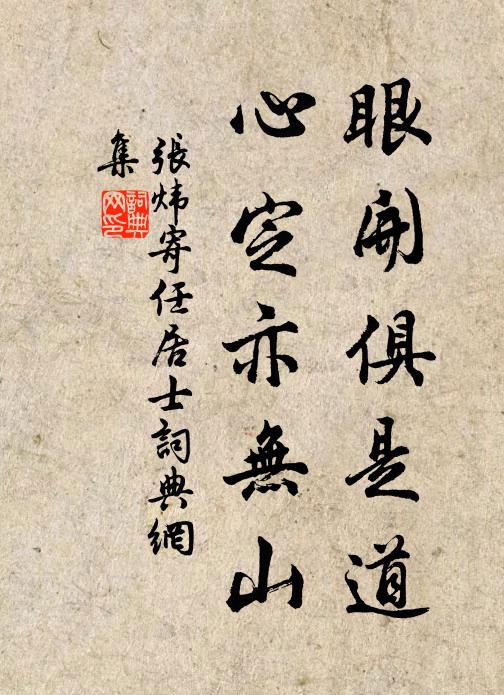 眼開俱是道
心定亦無山
張煒寄任居士詞典網
集
詞典
网印